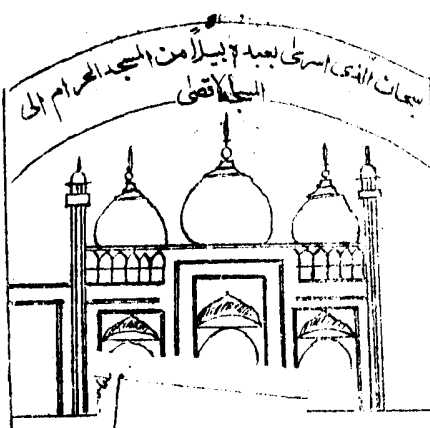 سبحان الذى اسرىٰ بعبدهٖ ليلاً من المسجد الحرام الى
المسجد الاقصٰى